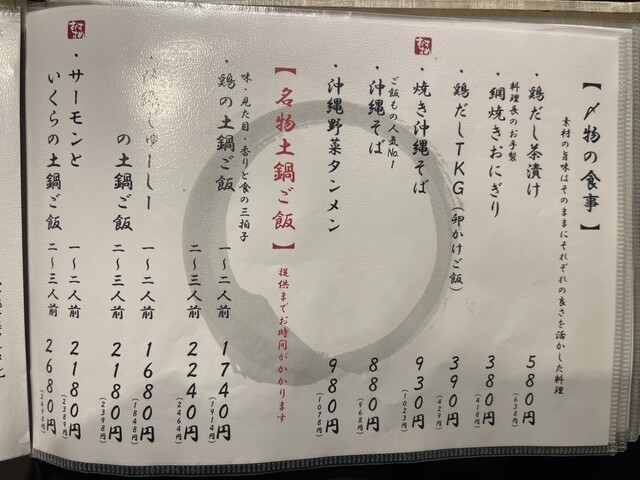 【〆物の食事】
素材の旨味はそのままにそれぞれの良さを活かした料理
・鶏だし茶漬け 580円
(638円)
料理長のお手製
・網焼きおにぎり 380円
(418円)
・鶏だしTKG(卵かけご飯) 390円
(429円)
・焼き沖縄そば 930円
(1023円)
ご飯もの人気No.1
・沖縄そば 880円
(968円)
・沖縄野菜タンメン 980円
(1078円)
【名物土鍋ご飯】 提供までお時間がかかります
味・見た目・香りと食の三拍子
・鶏の土鍋ご飯 一~二人前 1740円
(1914円)
二~三人前 2240円
(2464円)
じゅーしー
の土鍋ご飯 一~二人前 1680円
(1848円)
二~三人前 2180円
(2398円)
・サーモンと
いくらの土鍋ご飯 一~二人前 2180円
(2389円)
二~三人前 2680円